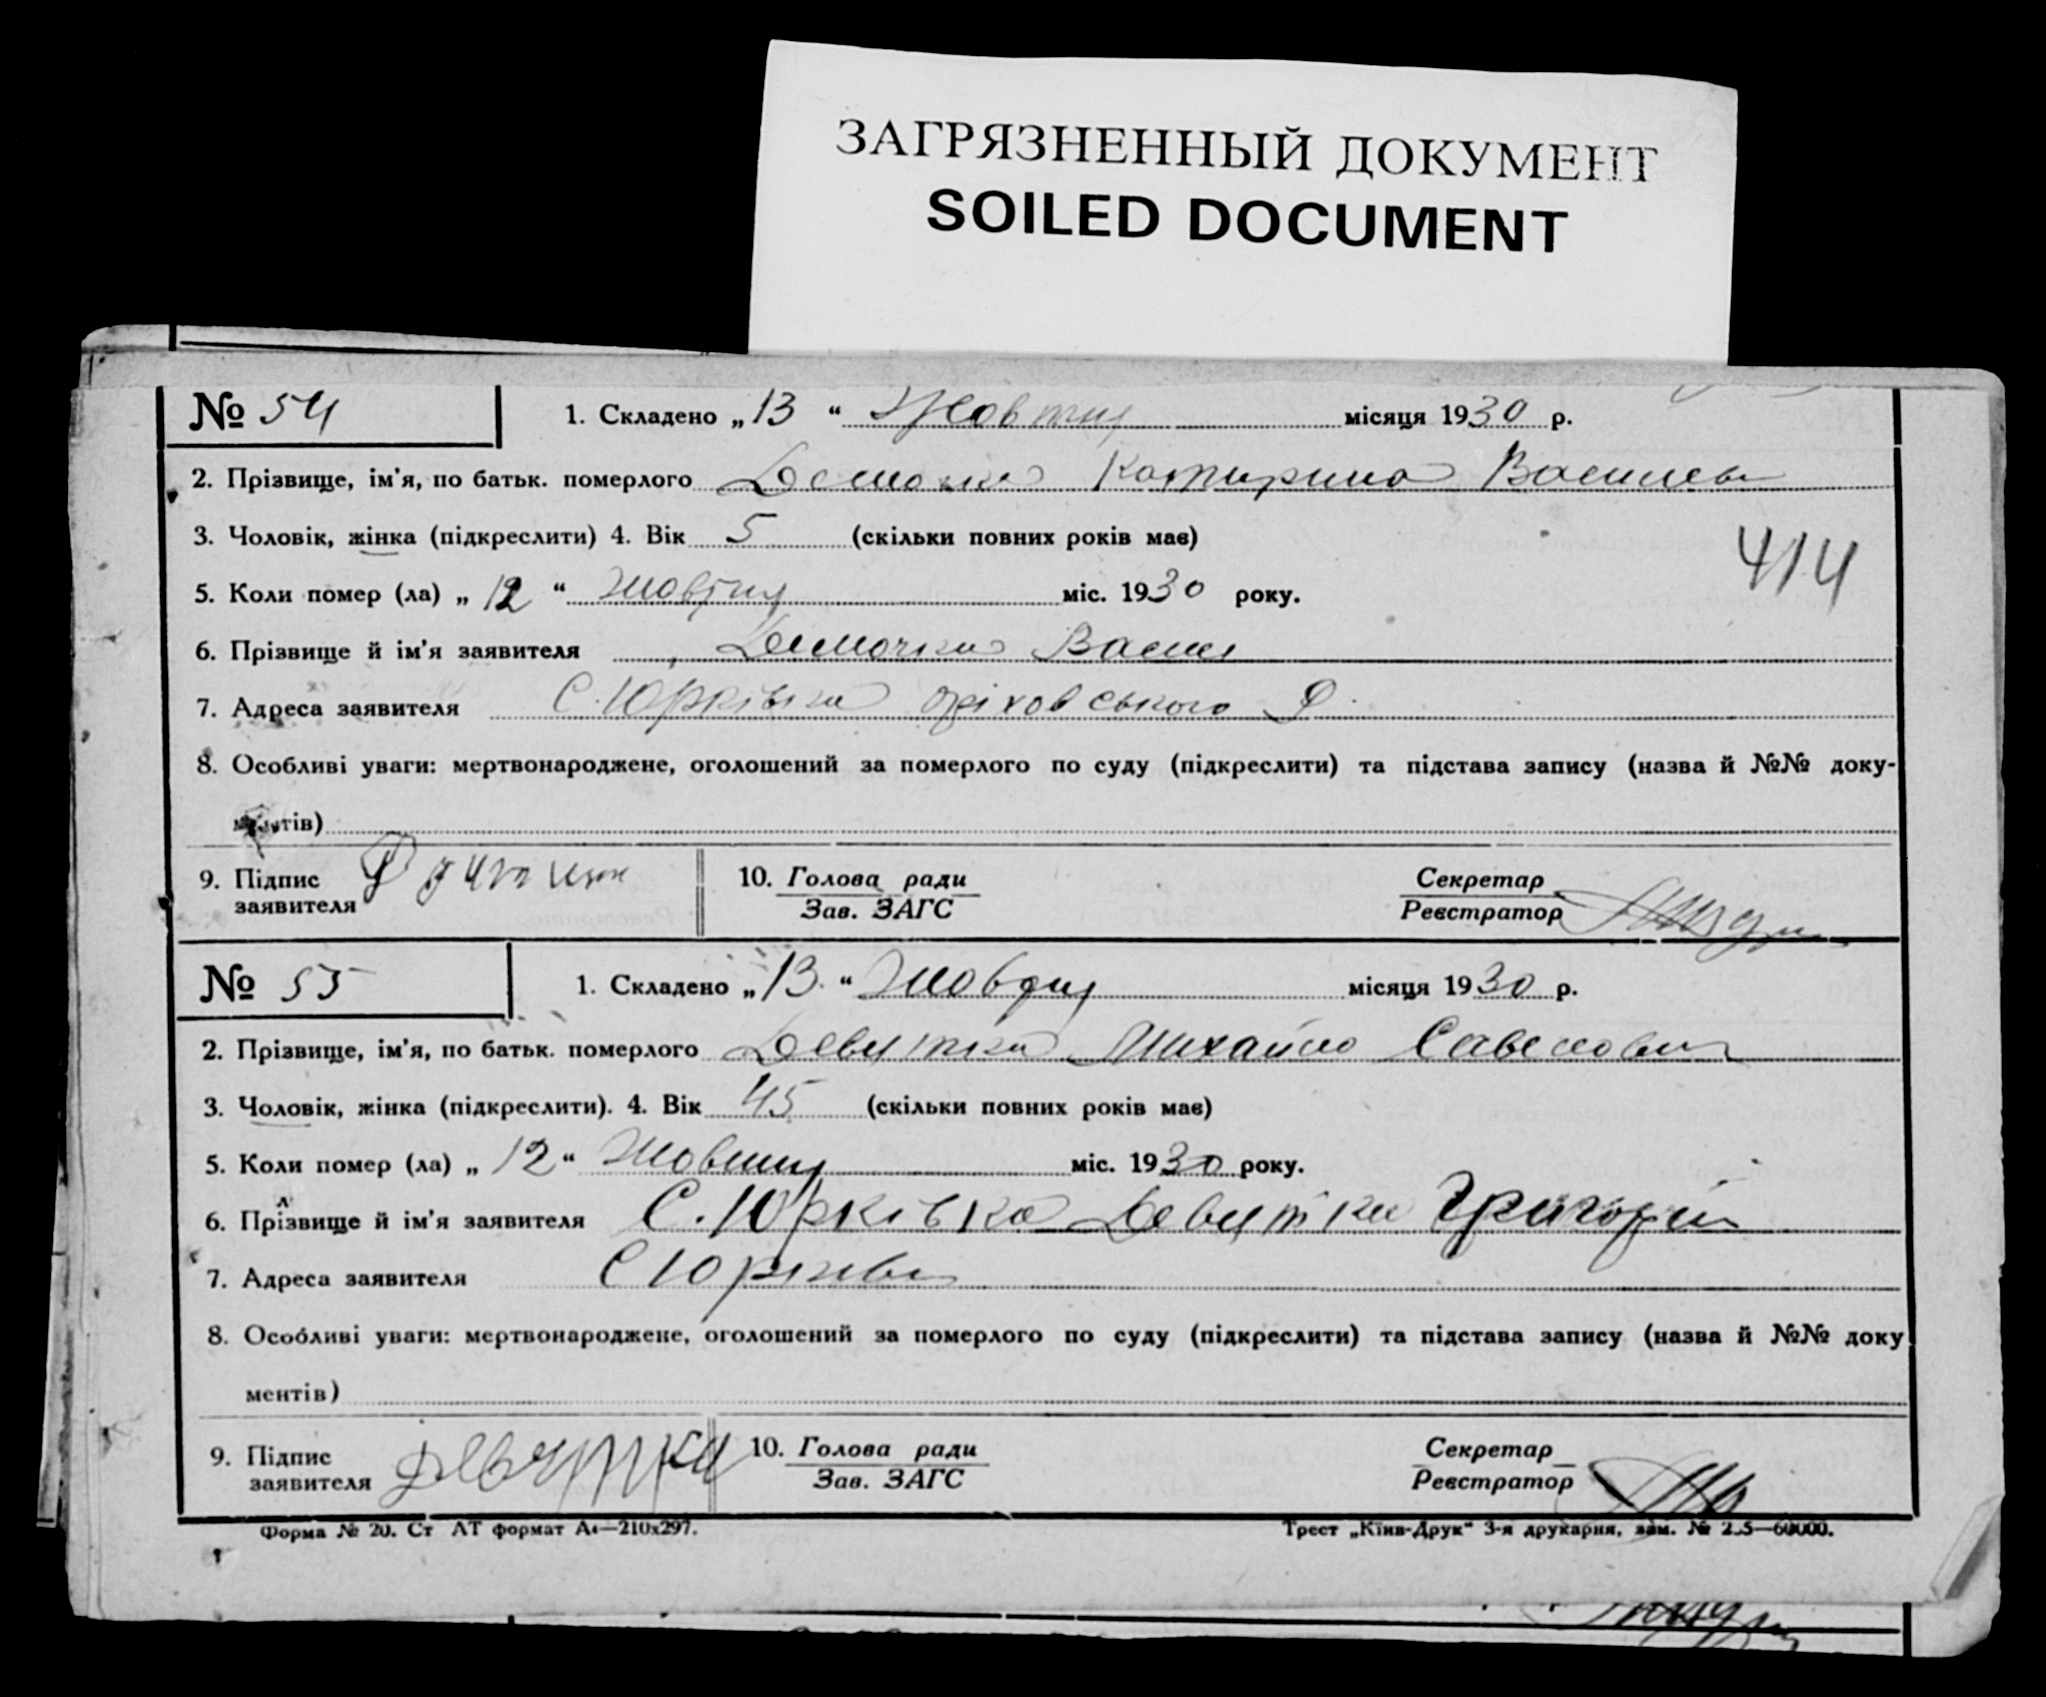 ЗАГРЯЗНЕННЫЙ ДОКУМЕНТ
SOILED DOCUMENT
№ 54 1. Складено „ 13 “ Жовтня місяця 1930 р.
2. Прізвище, ім'я, по батьк. померлого Катирина
3. Чоловік, жінка (підкреслити) 4. Вік 5 (скільки повних років має)
414
5. Коли помер (ла) „ 12 “ Жовтня міс. 1930 року.
6. Прізвище й ім'я заявителя Демочка Васил
7. Адреса заявителя С. Юрківка оріховського Р.
8. Особливі уваги: мертвонароджене, оголошений за померлого по суду (підкреслити) та підстава запису (назва й №№ доку-
ментів)
9. Підпис заявителя 10. Голова ради Секретар
Зав. ЗАГС Реєстратор
№ 55 1. Складено „ 13 “ Жовтня місяця 1930 р.
2. Прізвище, ім'я, по батьк. померлого Девятка Михайло Савелович
3. Чоловік, жінка (підкреслити). 4. Вік 45 (скільки повних років має)
5. Коли помер (ла) „ 12 “ Жовтня міс. 1930 року.
6. Прізвище й ім'я заявителя С. Юрківка Девятка Григорій
7. Адреса заявителя С Юрківка
8. Особливі уваги: мертвонароджене, оголошений за померлого по суду (підкреслити) та підстава запису (назва й №№ доку
ментів)
9. Підпис заявителя Девятка 10. Голова ради Секретар
Зав. ЗАГС Реєстратор
Форма № 20. Ст АТ формат А4—210х297. Трест „Київ-Друк“ 3-я друкарня, зам. №